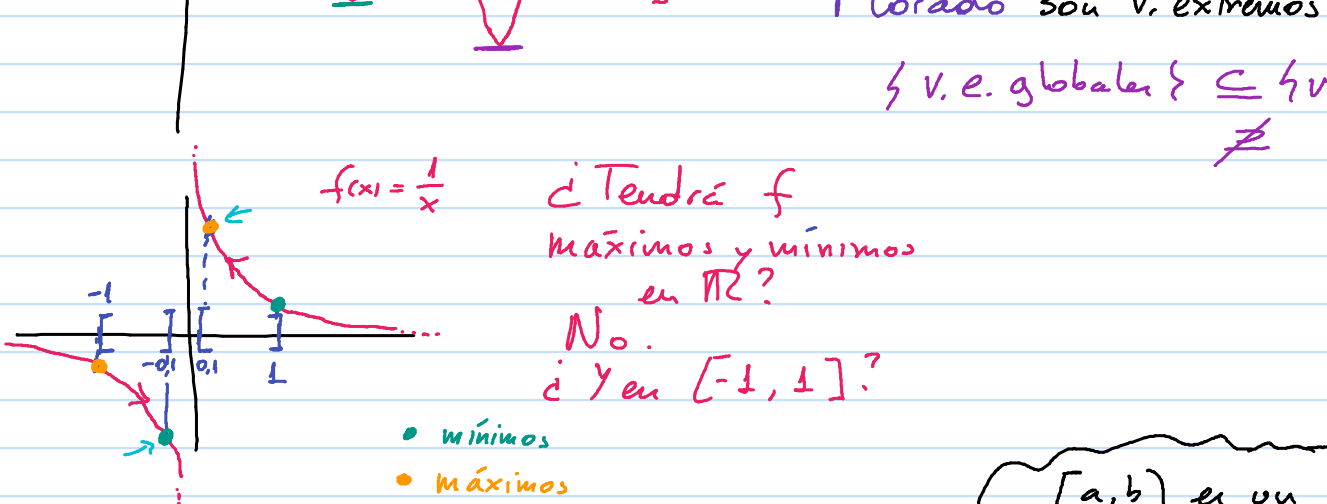 lorado son v. extremos
{ v. e. globales } ⊆ { v
⊉
f(x) = 1/x
¿ Tendrá f
máximos y mínimos
en ℝ?
No.
¿ Y en [-1, 1]?
-1
-0,1 0,1 1
• mínimos
• máximos
[a, b] es un